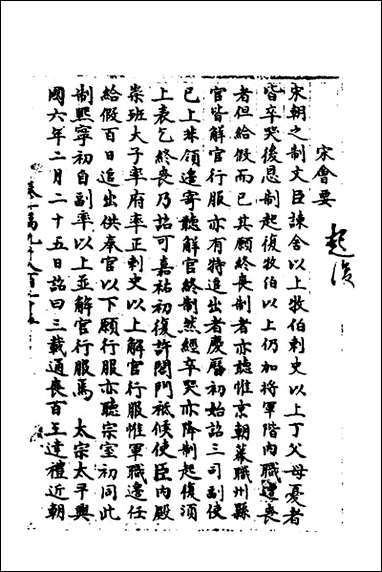 宋會要
起復
宋朝之制文臣諫舍以上牧伯刺史以上丁父母憂者
皆卒哭後恩制起復牧伯以上仍加將軍階内職遭喪
者但給假而已其願終喪制者亦聽惟京朝幕職州縣
官皆解官行服亦有特追出者慶曆初始詔三司副使
已上非領邊寄聽解官終制然經卒哭亦降制起復須
上表乞終喪乃詔可嘉祐初復許閤門祗候使臣内殿
崇班大子率府率正刺史以上解官行服惟軍職邊任
給假百日追出供奉官以下願行服亦聽宗室初同此
制熙寧初自副率以上並解官行服焉 太宗太平興
國六年二月二十五日詔曰三載通喪百王達禮近朝